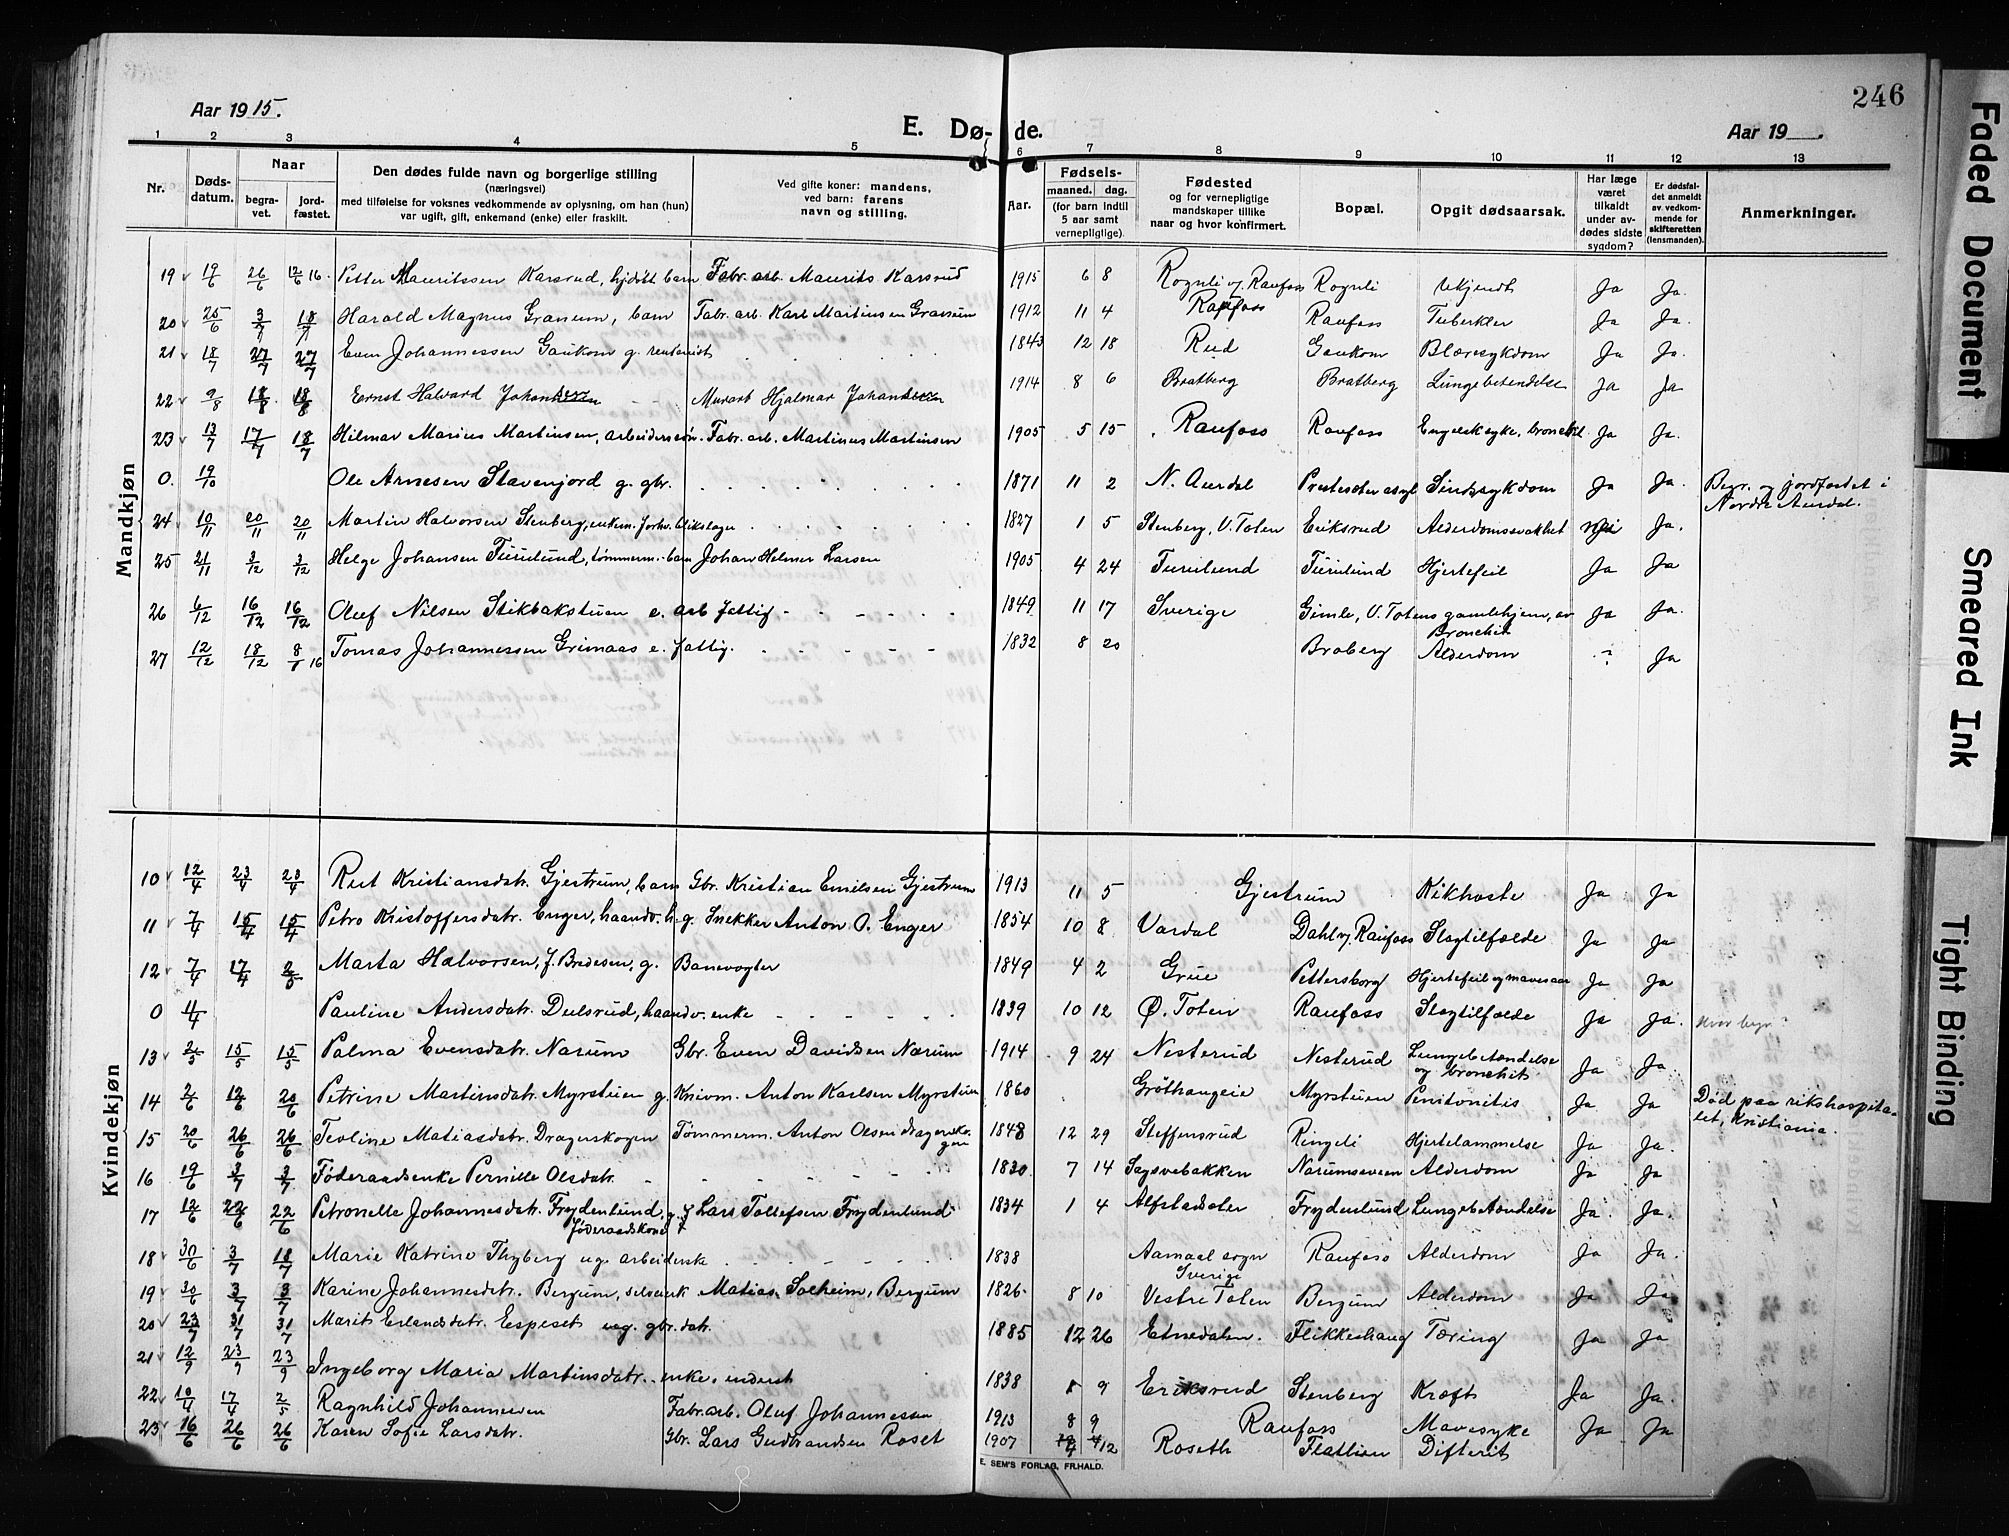 246
Aar 1915.
E. Dø- de.
Aar 19 .
1 2 3 4 5 6 7 8 9 10 11 12 13
Nr.
Døds-
datum.
Naar
begra-
vet.
jord-
fæstet.
Den dødes fulde navn og borgerlige stilling
(næringsvei)
med tilføielse for voksnes vedkommende av oplysning, om han (hun)
var ugift, gift, enkemand (enke) eller fraskilt.
Ved gifte koner: mandens,
ved barn: farens
navn og stilling.
Aar.
Fødsels-
maaned. dag.
(for barn indtil
5 aar samt
vernepligtige).
Fødested
og for vernepligtige
mandskaper tillike
naar og hvor konfirmert.
Bopæl.
Opgit dødsaarsak.
Har læge
været
tilkaldt
under av-
dødes sidste
sygdom?
Er dødsfal-
det anmeldt
av vedkom-
mende for
skifteretten
(lensmanden).
Anmerkninger.
Mandkjøn
19 19/6 26/6 12/6 16. Petter Mauritssen Karsrud, barn Fabr. arb. Maurits Karsrud 1915 6 8 Rognli v/ Raufoss Rognli Ukjendt Ja Ja.
20 25/6 3/7 18/7 Harald Magnus Granum, barn Fabr. arb. Karl Martinsen Granum 1912 11 4 Raufoss Raufoss Tuberkler Ja Ja.
21 18/7 27/7 27/7 Even Johannessen Gaukom g. rentenist 1843 12 18 Rud Gaukom Blæresykdom Ja Ja.
22 9/8 18/8 18/8 Ernst Halvard Johansen Murarb Hjalmar Johansen 1914 8 6 Bratberg Bratberg Lungebetendelse Ja Ja
23 13/7 17/7 18/7 Hilmar Marius Martinsen, arbeiderssøn. Fabr. arb. Martinus Martinsen 1905 5 15 Raufoss Raufoss Engelsksyke, bronchit. Ja Ja.
0. 19/10 Ole Arnesen Stavenjord g. gbr. 1871 11 2 N. Aurdal Presteseter asyl Sindssykdom Ja Ja. Begr. og jordfæstet i
Nordre Aurdal.
24 10/11 20/11 20/11 Martin Halvorsen Stenberg, enkem. forhv. 1827 1 5 Stenberg, V. Toten Eriksrud Alderdomssvakhet nei Ja.
25 21/11 3/12 3/12 Helge Johansen Furulund, tømmerm. barn Johan Helmer Larsen 1905 4 24 Furulund Furulund Hjertefeil Ja Ja
26 6/12 16/12 16/12 Oluf Nilsen Stikbakstuen e. arb fattig 1849 11 17 Sverige Gimle, V. Totens gamlehjem, av Ja Ja.
Bronchit
27 12/12 18/12 8/1 16 Tomas Johannessen Grimaas e. fattig. 1832 8 20 Broberg Alderdom ? Ja
Kvindekjøn
10 12/4 23/4 23/4 Rut Kristiansdatr. Gjestrum, barn Gbr. Kristian Emilsen Gjestrum 1913 11 5 Gjestrum Kikhoste Ja Ja
11 7/4 15/4 15/4 Petro Kristoffersdatr. Enger, haandv. h. g. Snekker Anton O. Enger 1854 10 8 Vardal Dahl v/ Raufoss Slagtilfælde Ja Ja
12 7/4 17/4 2/5 Marta Halvorsen, f. Bredesen, g. Banevogter 1849 4 2 Grue Pettersborg Hjertefeil og mavesaar Ja Ja
0 11/4 Pauline Andersdatr. Dulsrud, haandv. enke 1839 10 12 Ø. Toten Raufoss Slagtilfælde Ja Ja. Hvor begr.?
13 2/5 15/5 15/5 Palma Evensdatr. Narum Gbr. Even Davidsen Narum 1914 9 24 Nesterud Nesterud Lungebetændelse
og bronchit Ja Ja.
14 2/6 12/6 20/6 Petrine Martinsdatr. Myrstuen g. Knivm. Anton Karlsen Myrstuen 1860 Grøthaugeie Myrstuen Penitonitis Ja Ja Død paa rikshospita-
let, Kristiania.
15 20/6 26/6 26/6 Teoline Matiasdatr. Dragerskogen Tømmerm. Anton Olsen Dragersko-
gen 1848 12 29 Steffensrud Ringeli Hjertelammelse Ja Ja.
16 19/6 3/7 3/7 Føderaadsenke Pernille Olsdatr. 1830 7 14 Sagsvebakken Narumsveen Alderdom Ja Ja
17 12/6 22/6 22/6 Petronelle Johannesdatr. Frydenlund, g. f Lars Tollefsen Frydenlund 1834 1 4 Alfstadseter Frydenlund Lungebetændelse Ja Ja.
Føderaadskone
18 30/6 3/7 18/7 Marie Katrine Thyberg ug. arbeiderske 1838 Aamaal sogn Raufoss Alderdom Ja Ja.
Sverige
19 30/6 3/7 3/7 Karine Johannesdatr. Bergum, Matias Solheim, Bergum 1826 8 10 Vestre Toten Bergum Alderdom Ja Ja
20 23/7 31/7 31/7 Marit Erlandsdatr. Espeset ug. gbr. datr. 1885 12 26 Etnedalen. Flikkeshaug Tæring Ja Ja
21 12/9 23/9 23/9 Ingeborg Maria Martinsdatr. enke, inderst 1838 8 9 Eriksrud Stenberg Kræft Ja Ja.
22 10/4 17/4 2/5 Ragnhild Johannessen Fabr. arb. Oluf Johannessen 1913 8 9 Raufoss Mavesyke Ja Ja
23 16/6 26/6 26/6 Karen Sofie Larsdatr. Gbr. Lars Gudbrandsen Roset 1907 4 12 Roseth Flatlien Difterit
E. SEM'S FORLAG, FR.HALD.
Faded Document
Smeared Ink
Tight Binding